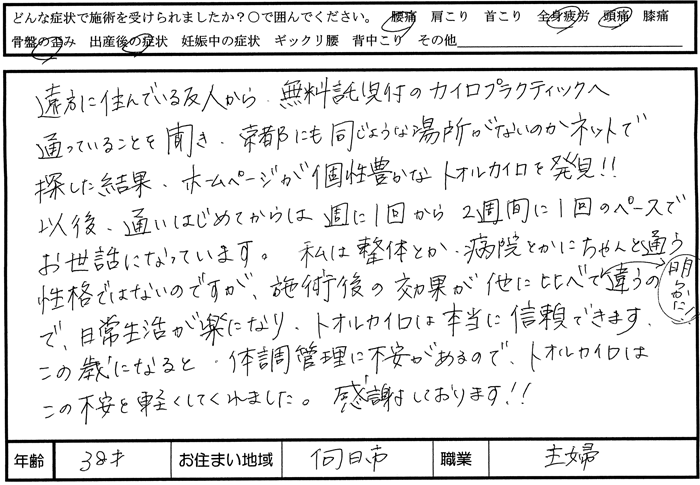 どんな症状で施術を受けられましたか？○で囲んでください。 腰痛 肩こり 首こり 全身疲労 頭痛 膝痛
骨盤の歪み 出産後の症状 妊娠中の症状 ギックリ腰 背中こり その他
遠方に住んでいる友人から、無料託児付のカイロプラクティックへ
通っていることを聞き、京都にも同じような場所がないのかネットで
探した結果、ホームページが個性豊かなトオルカイロを発見！！
以後、通いはじめてからは週に1回から2週間に1回のペースで
お世話になっています。 私は整体とか、病院とかにちゃんと通う
性格ではないのですが、施術後の効果が他に比べて明らかに違うの
で、日常生活が楽になり、トオルカイロは本当に信頼できます。
この歳になると、体調管理に不安があるので、トオルカイロは
この不安を軽くしてくれました。 感謝しております！！
年齢 38才 お住まい地域 向日市 職業 主婦